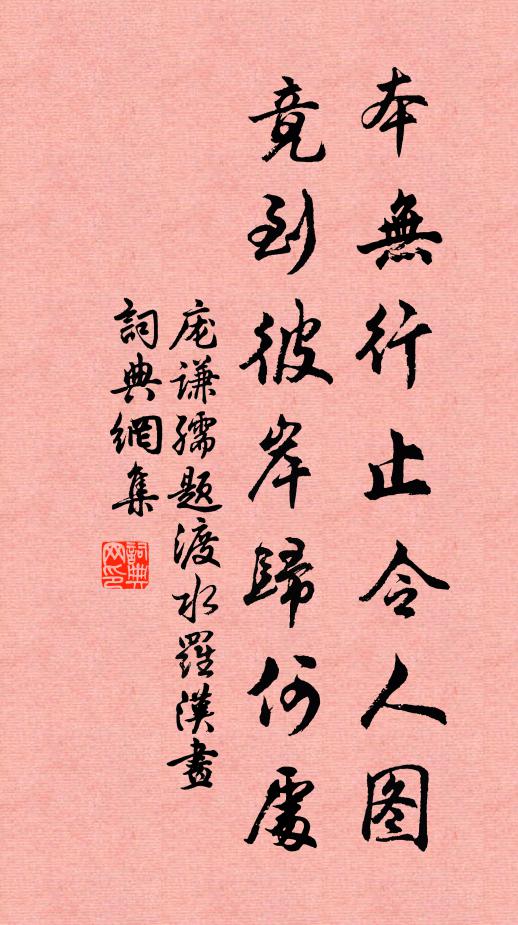 本無行止令人图
竟到彼岸歸何處
庞谦孺题渡水羅漢畫
詞典網集
詞典網印